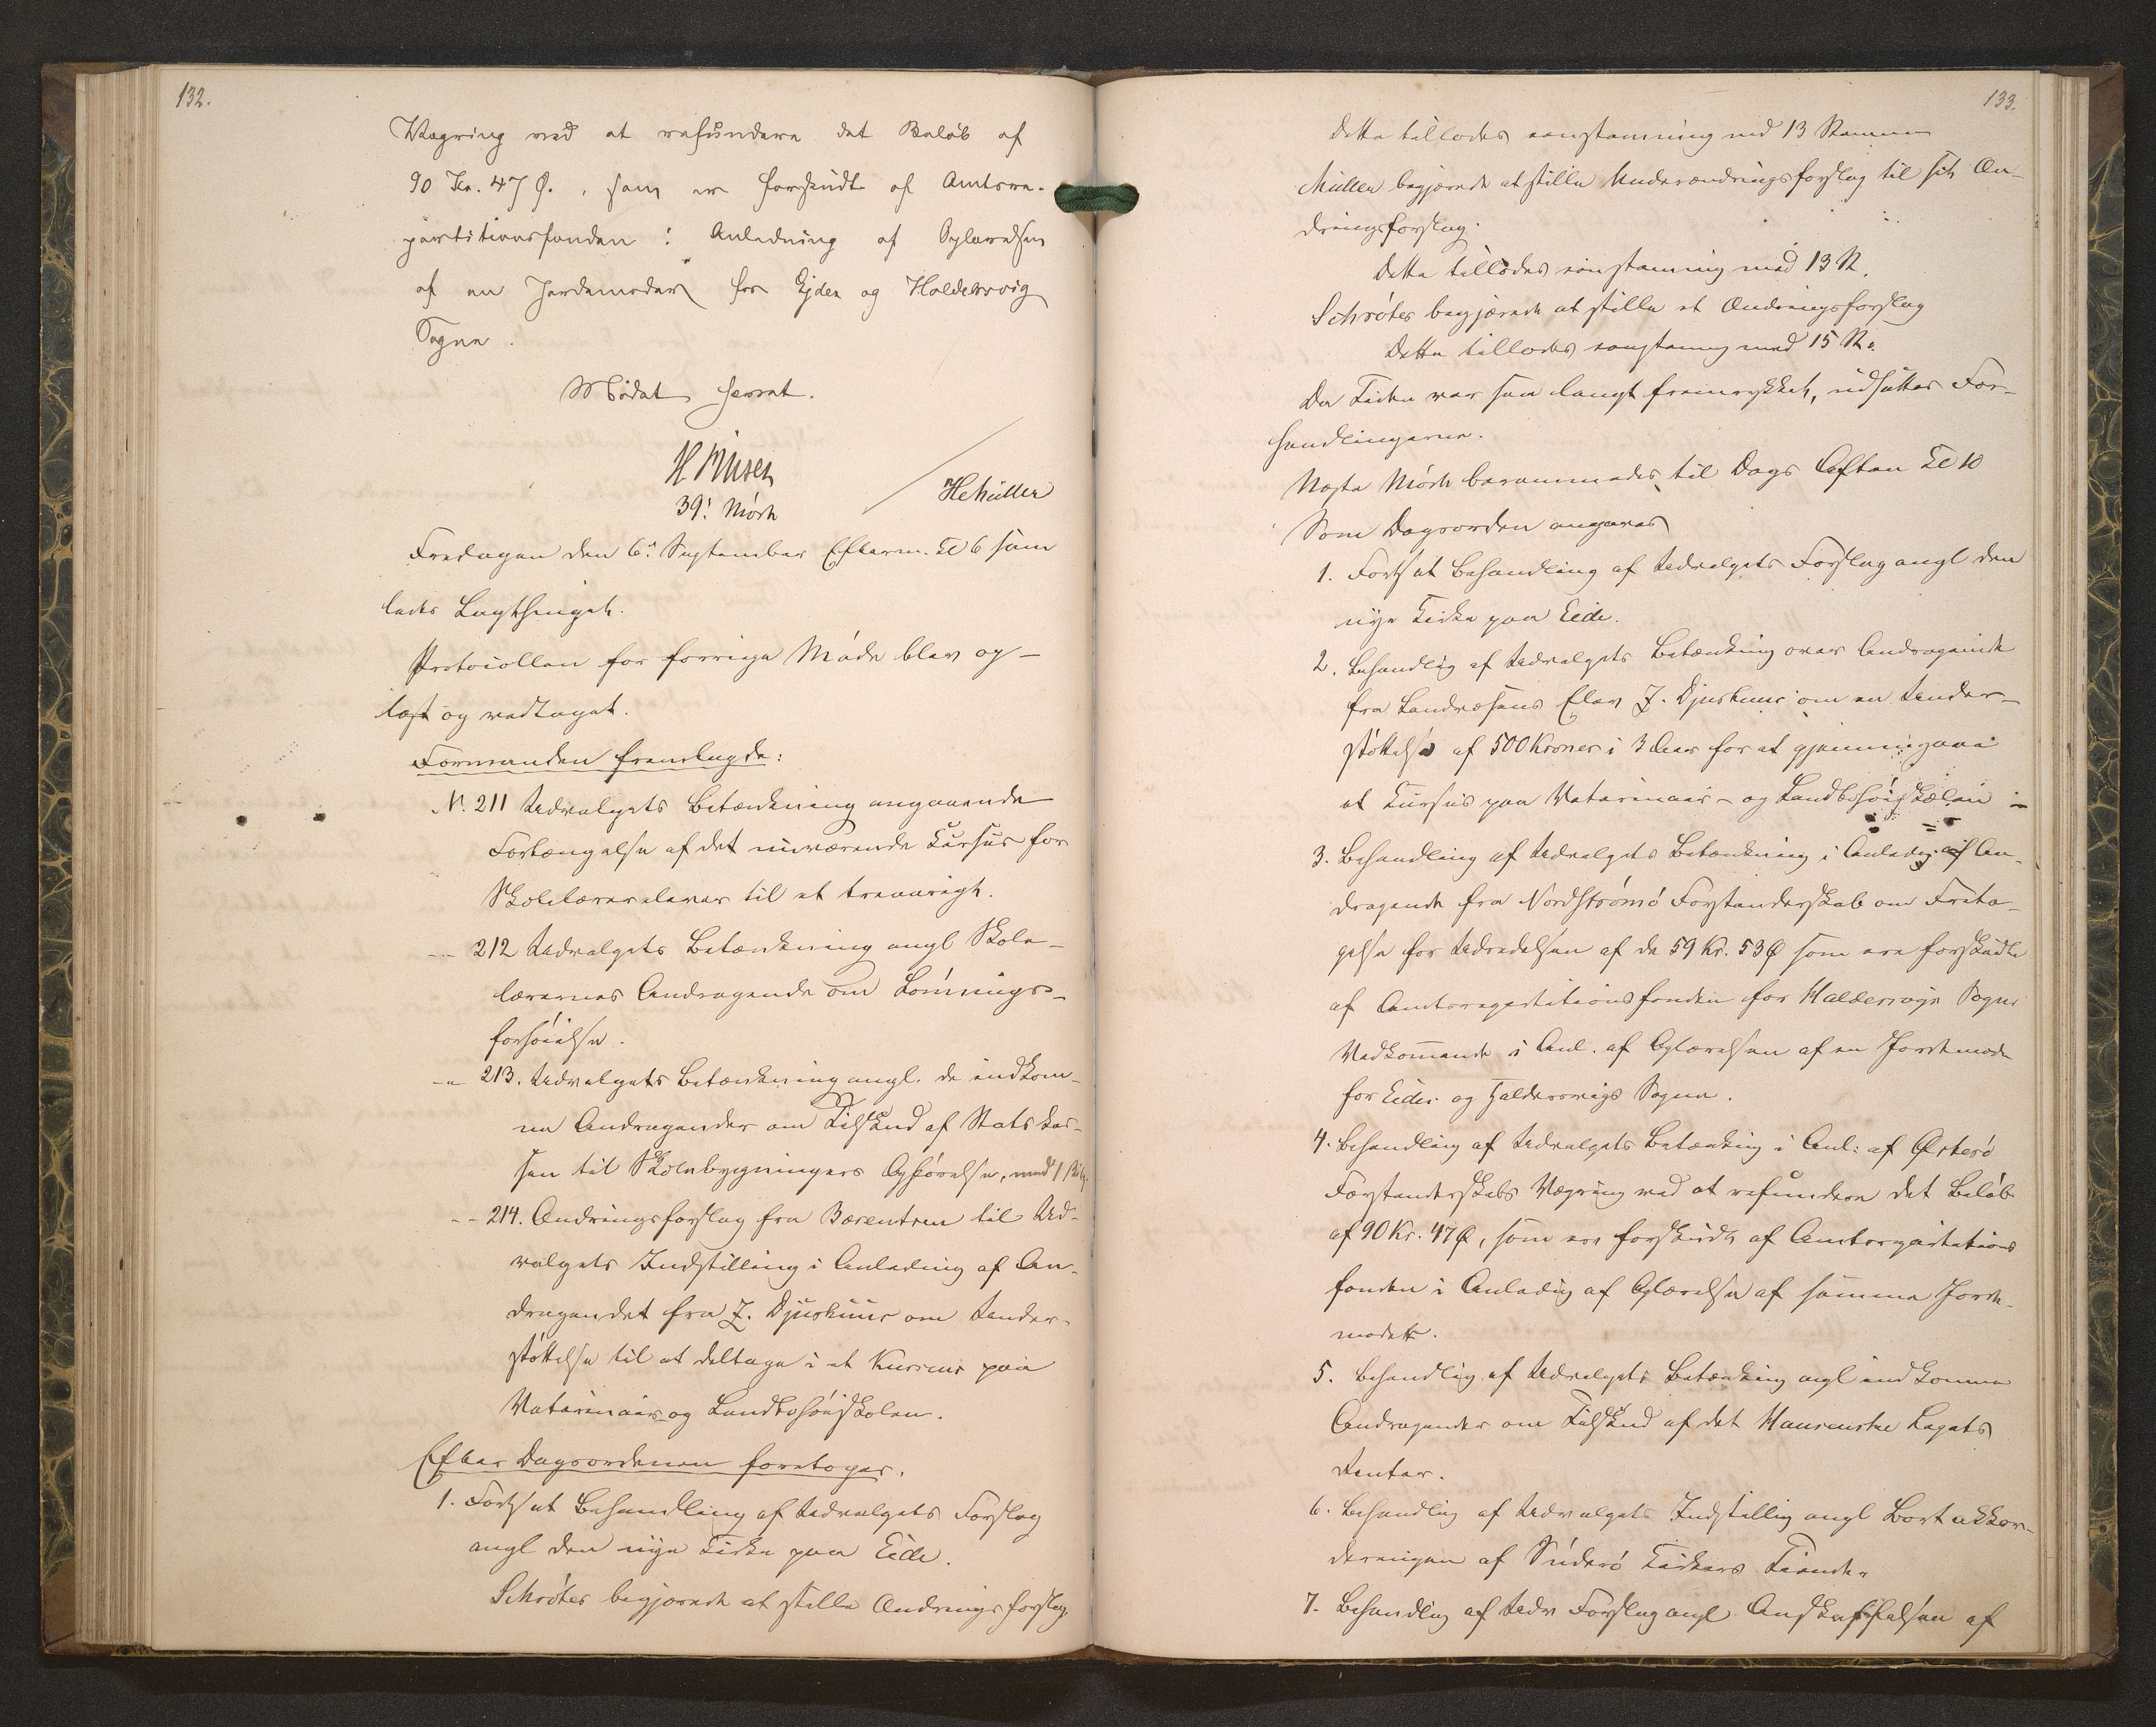 132.
Vægring ved at refundere det Beløb af
90 Kr. 47 Ø., som er forskudt af Amtsre-
partitionsfonden i Anledning af Oplærelsen
af en Jordemoder for Ejde og Haldersvig
Sogne.
Mødet hævet.
HMüller
39! Møde
Fredagen den 6te September Efterm. Kl 6 sam
ledes Lagthinget.
Protocollen for forrige Møde blev op-
læst og vedtaget.
Formanden fremlagde:
N. 211 Udvalgets Betænkning angaaende
Forlængelse af det nuværende Kursus for
Skolelærerelever til et treaarigt.
— 212 Udvalgets Betænkning angl Skole-
lærernes Andragende om Lønnings-
forhøielse.
-„- 213. Udvalgets Betænkning angl. de indkom-
ne Andragender om Tilskud af Statskas-
sen til Skolebygningers Opførelse, med 1 Bilag.
- - 214. Ændringsforslag fra Bærentsen til Ud-
valgets Indstilling i Anledning af An-
dragendet fra J. Djurhuus om Under-
støttelse til at deltage i et Kursus paa
Veterinair og Landbohøiskolen.
Efter Dagsordenen foretoges.
1. Fortsat Behandling af Udvalgets Forslag
angl den nye Kirke paa Eide.
Schrøter begjærede at stille Ændringsforslag
133.
Dette tillodes eenstemmig med 13 Stemmer
Müller begjærede at stille Underændringsforslag til sit Æn-
dringsforslag.
Dette tillodes eenstemmig med 13 St.
Schrøter begjærede at stille et Ændringsforslag
Dette tillodes eenstemmig med 15 St.
Da Tiden var saa langt fremrykket, udsattes For-
handlingerne.
Næste Møde berammedes til Dags Aften Kl 10
Som Dagsorden angaves
1. Fortsat Behandling af Udvalgets Forslag angl den
nye Kirke paa Eide.
2. Behandlig af Udvalgets Betænkning over Andragende
fra Landvæsens Elev J. Djurhuus om en Under-
støttelse af 500 Kroner i 3 Aar for at gjennemgaa
et Kursus paa Veterinair- og Landbohøiskolen
3. Behandling af Udvalgets Betænkning i Anledng. af An-
dragende fra Nordstrømø Forstanderskab om Frita-
gelse for Udredelsen af de 59 Kr. 53 Ø som ere forskudte
af Amtsrepartitionsfonden for Haldersvigs Sogns
Vedkommende i Anl. af Oplærelsen af en Jordemoder
for Eides og Haldersvigs Sogne.
4. Behandling af Udvalgets Betænkning i Anl: af Østerø
Forstanderskabs Vægring ved at refundere det Beløb
af 90 Kr. 47 Ø, som ere forskudte af Amtsrepartitions
fonden i Anledng af Oplærelse af samme Jorde-
moder.
5. Behandlig af Udvalgets Betænkning angl indkomne
Andragender om Tilskud af det Hansenske Legats
Renter.
6. Behandling af Udvalgets Indstilling angl Bortakkor-
deringen af Suderø Kirkers Tiender
7. Behandling af Udv Forslag angl Anskaffelsen af